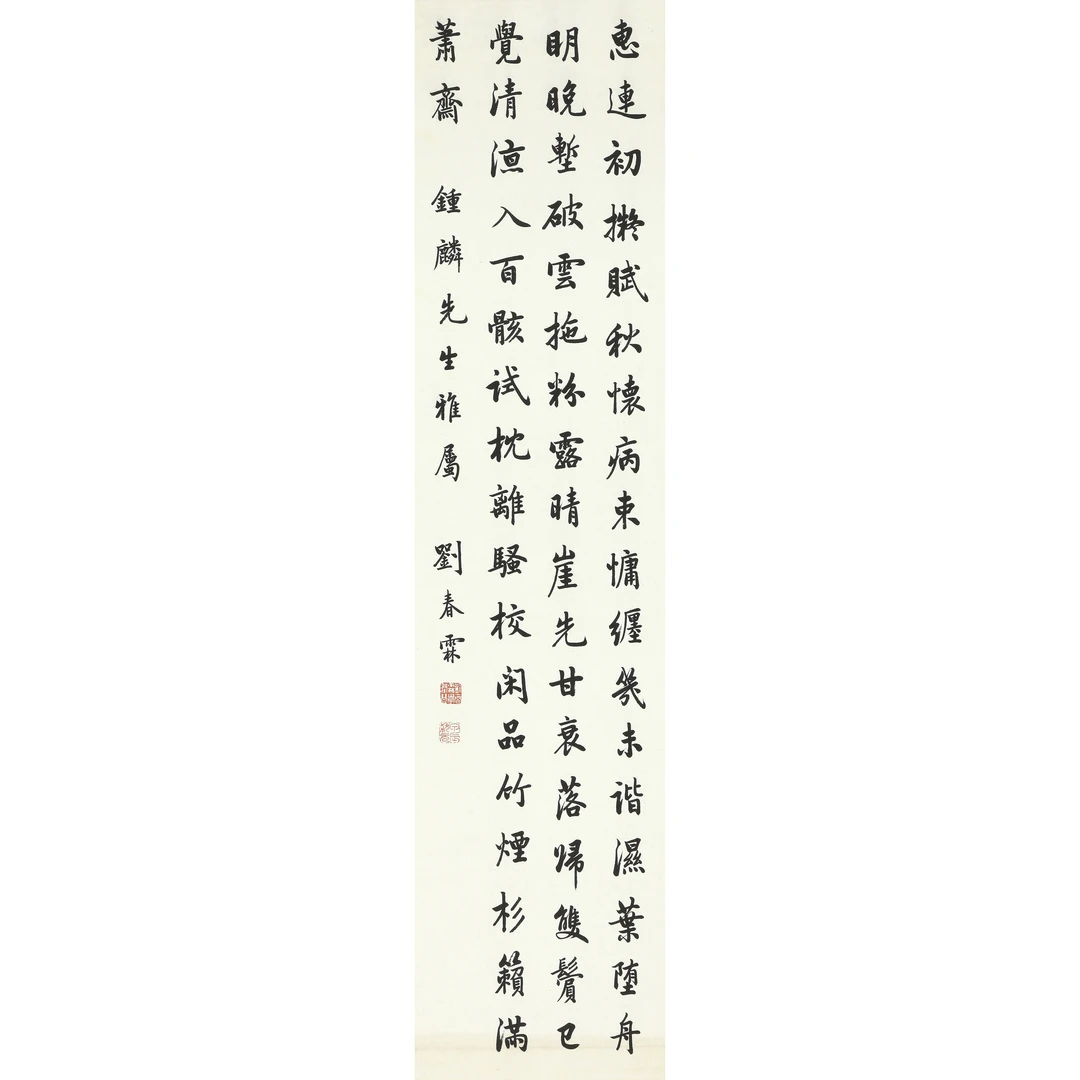 惠連初擬賦秋懷病束慵纏幾未諧濕葉堕舟
明晚塹破雲拖粉露晴崖先甘衰落歸雙鬢已
覺清涼入百骸試枕離騷校閑品竹煙杉籟滿
蕭齋 鍾麟先生雅屬 劉春霖